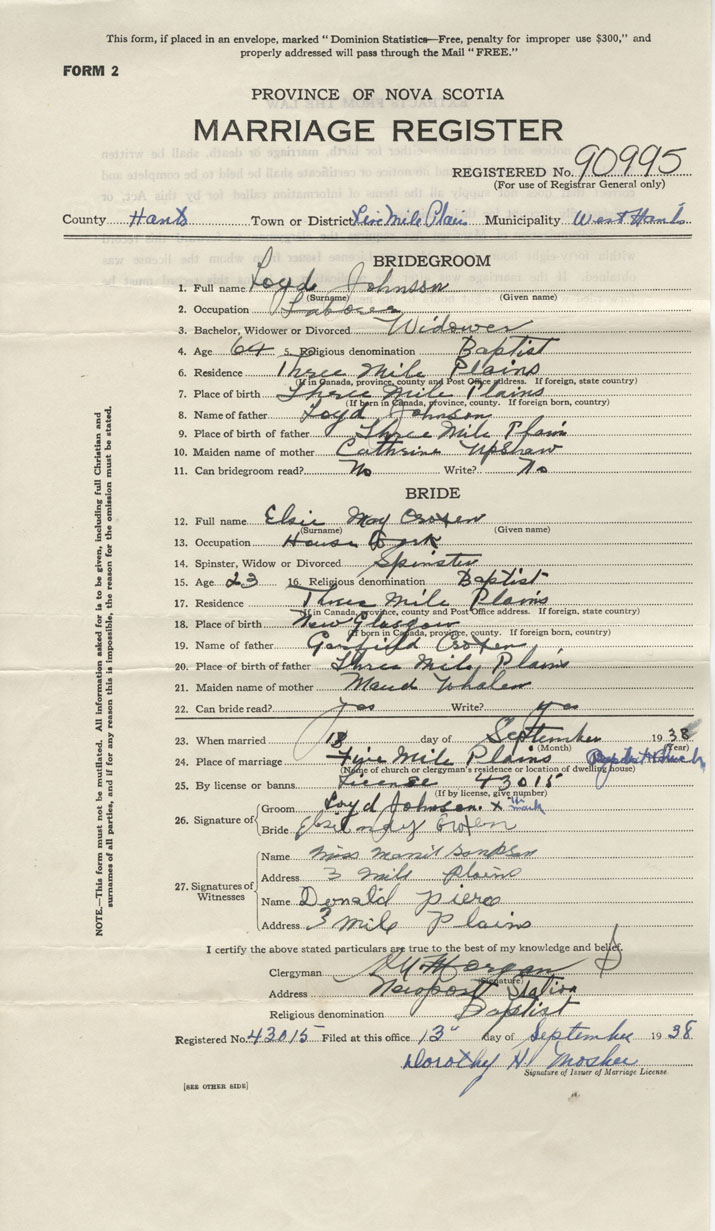 This form, if placed in an envelope, marked "Dominion Statistics—Free, penalty for improper use $300," and
properly addressed will pass through the Mail "FREE."
FORM 2
PROVINCE OF NOVA SCOTIA
MARRIAGE REGISTER
REGISTERED No. 90995
(For use of Registrar General only)
County Hants Town or District Five Mile Plain Municipality West Hants
BRIDEGROOM
1. Full name Loyd Johnson
(Surname) (Given name)
2. Occupation Laborer
3. Bachelor, Widower or Divorced Widower
4. Age 64 5. Religious denomination Baptist
6. Residence Three Mile Plains
(If in Canada, province, county and Post Office address. If foreign, state country)
7. Place of birth Three Mile Plains
(If born in Canada, province, county. If foreign born, country)
8. Name of father Loyd Johnson
9. Place of birth of father Three Mile Plain
10. Maiden name of mother Cathrine Upshaw
11. Can bridegroom read? No Write? No
BRIDE
12. Full name Elsie May Croxen
(Surname) (Given name)
13. Occupation House Work
14. Spinster, Widow or Divorced Spinster
15. Age 23 16. Religious denomination Baptist
17. Residence Three Mile Plains
(If in Canada, province, county and Post Office address. If foreign, state country)
18. Place of birth New Glasgow
(If born in Canada, province, county. If foreign born, country)
19. Name of father Garfield Croxen
20. Place of birth of father Three Mile Plains
21. Maiden name of mother Maud Whalen
22. Can bride read? yes Write? yes
23. When married 18 day of September 1938
(Month) (Year)
24. Place of marriage Five Mile Plains Baptist Church
(Name of church or clergyman's residence or location of dwelling house)
25. By license or banns License 43015
(If by license, give number)
26. Signature of
Groom Loyd Johnson. x his mark
Bride Elsie may Croxen
27. Signatures of Witnesses
Name Miss
Address 3 Mile Plains
Name Donald Pierce
Address 3 Mile Plains
I certify the above stated particulars are true to the best of my knowledge and belief.
Clergyman Morgan
(Signature)
Address Newport Station
Religious denomination Baptist
Registered No. 43015 Filed at this office 13" day of September 1938
Dorothy H. Mosher
Signature of Issuer of Marriage License.
[SEE OTHER SIDE]
NOTE.—This form must not be mutilated. All information asked for is to be given, including full Christian and
surnames of all parties, and if for any reason this is impossible, the reason for the omission must be stated.